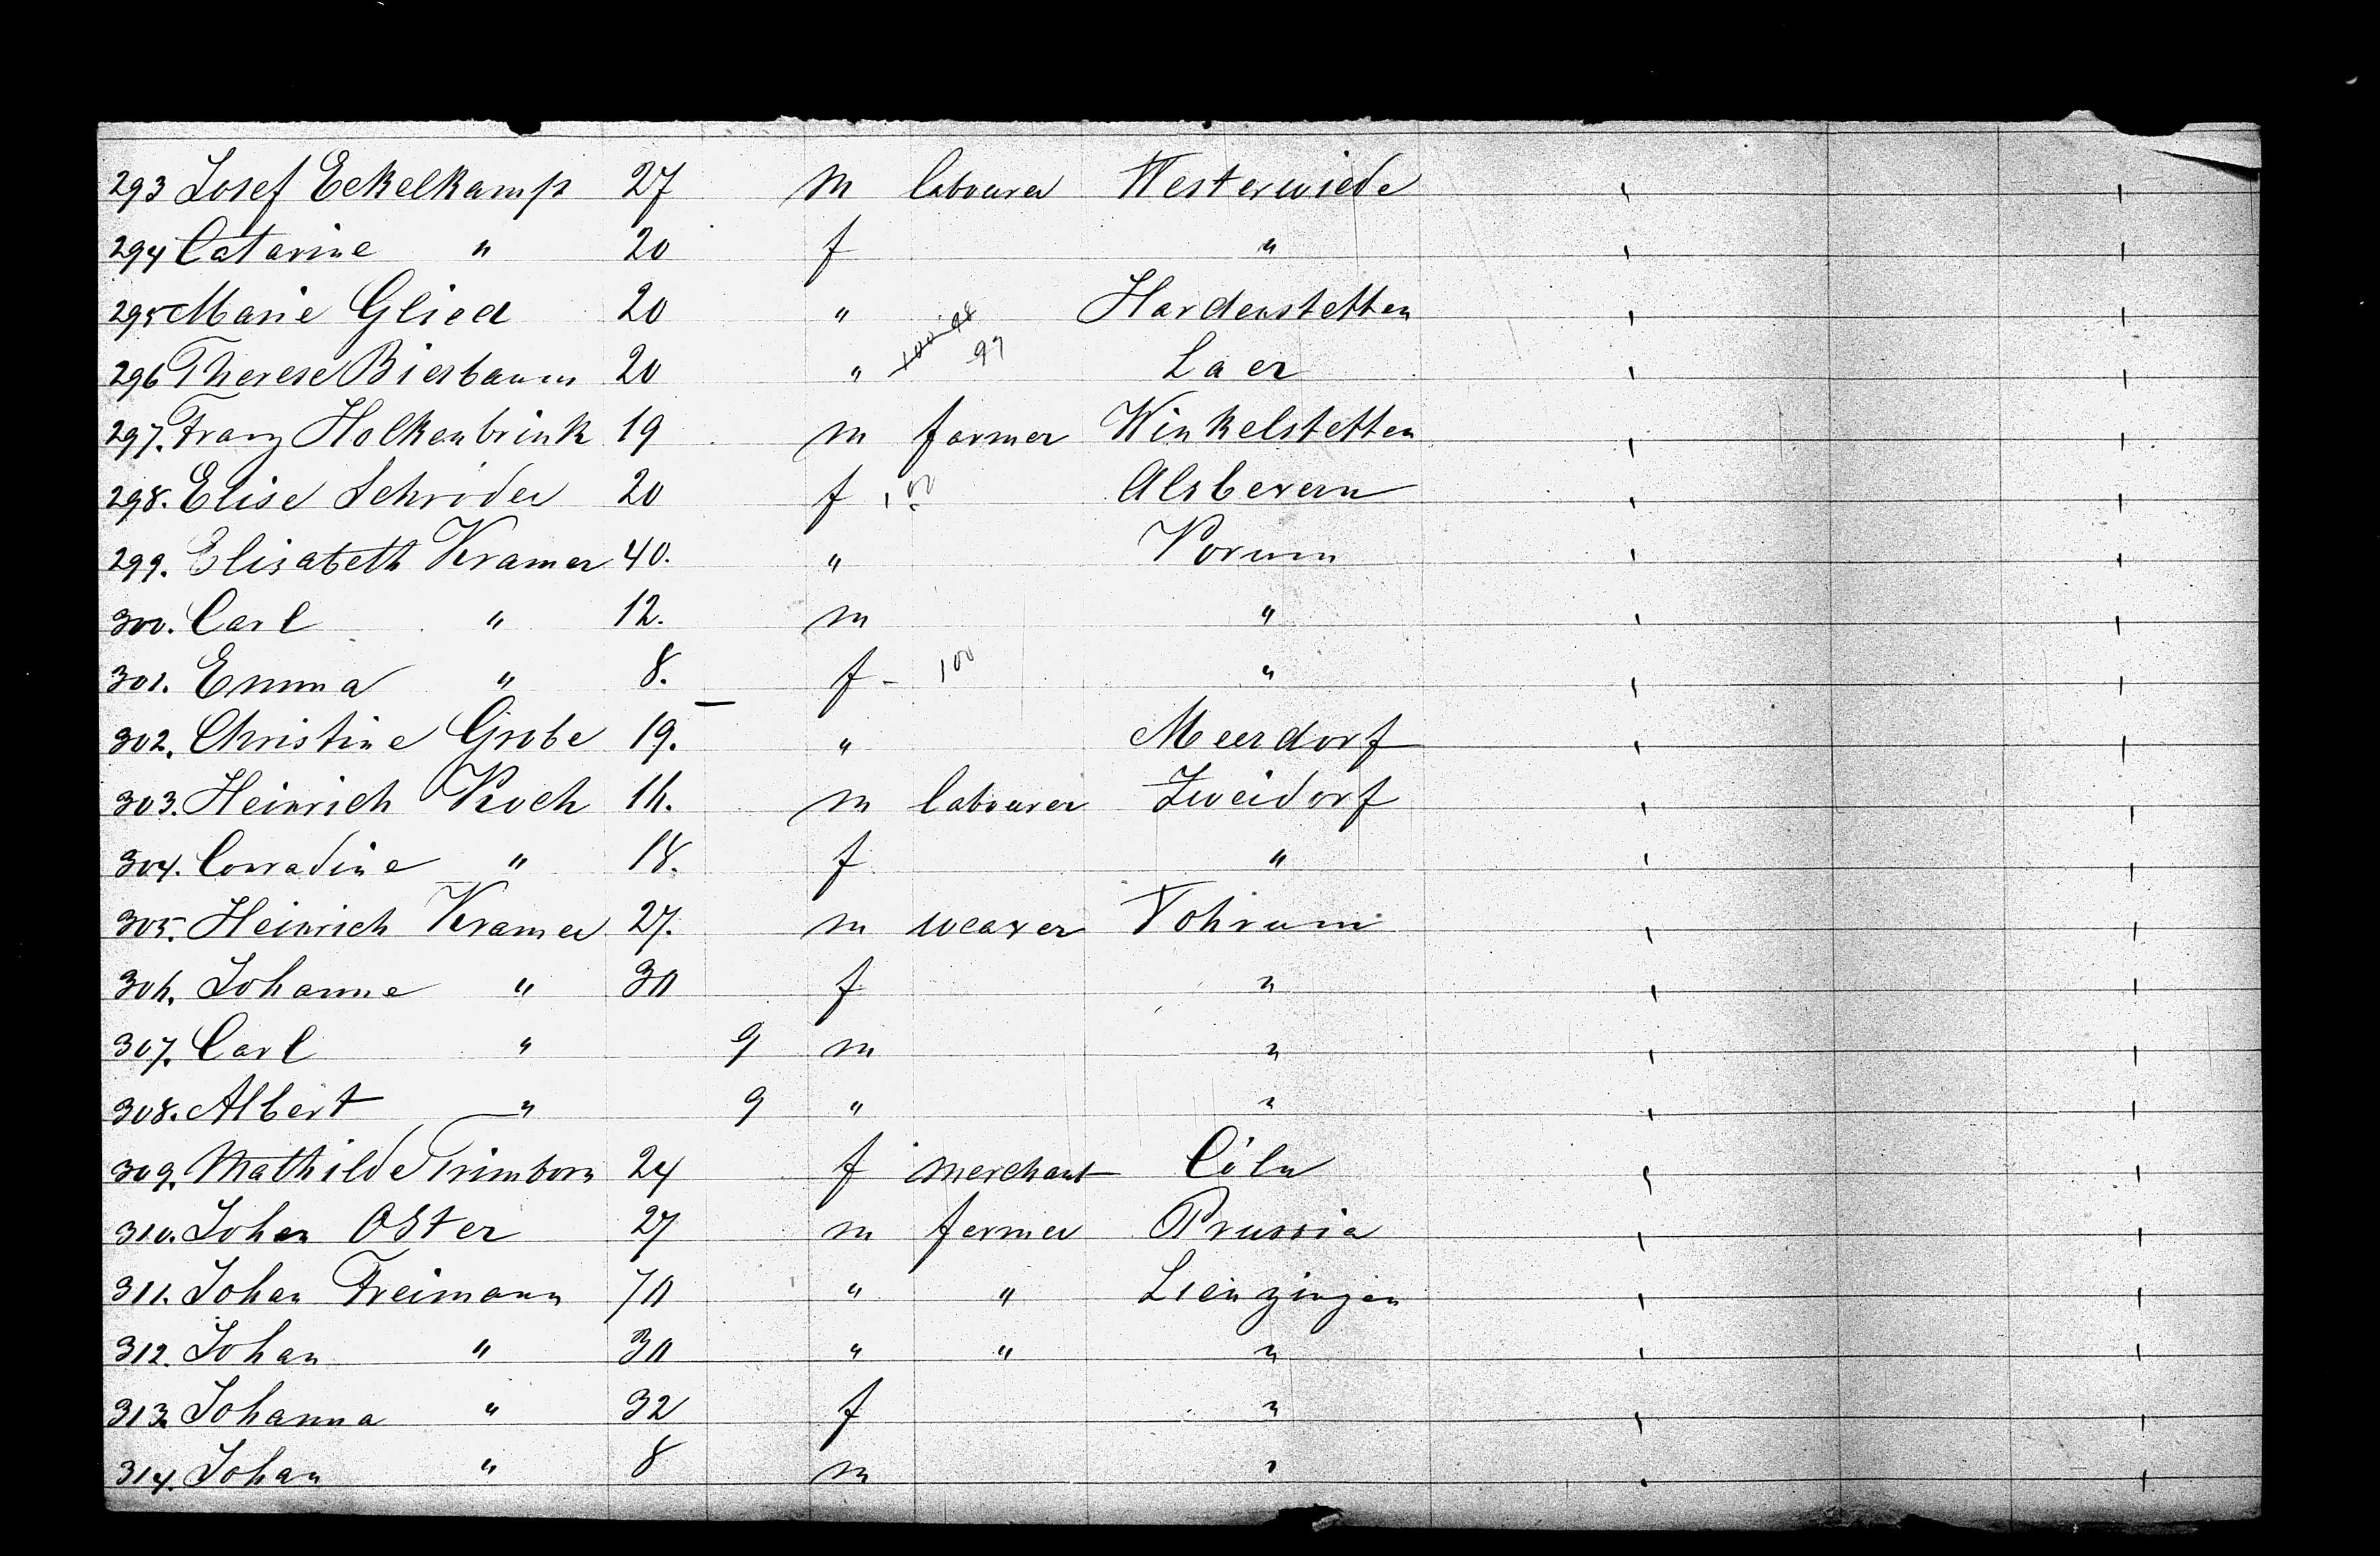 293 Josef Eckelkamp 27 m labourer Westerwiede
294 Catarine " 20 f "
295 Marie Glied 20 " Hardenstetten
296 Therese Bierbaum 20 " 97 Laer
297. Franz Holkenbrink 19 m farmer Winkelstetten
298. Elise Schröder 20 f 100 Alsbevern
299. Elisabeth Kramer 40. " Vorum
300. Carl " 12. m "
301. Emma " 8. f - 100 "
302. Christine Grobe 19. " Meerdorf
303. Heinrich Koch 16. m labourer Zweidorf
304. Conradine " 18. f "
305. Heinrich Kramer 27. m weaver Vohrum
306. Johanne " 30 f "
307. Carl " 9 m "
308. Albert " 9 " "
309. Mathilde Trimborn 24 f merchant Cöln
310. Johan Oster 27 m farmer Prussia
311. Johan Freimann 70 " " Lienzingen
312. Johan " 30 " " "
313. Johanna " 32 f "
314. Johan " 8 m "